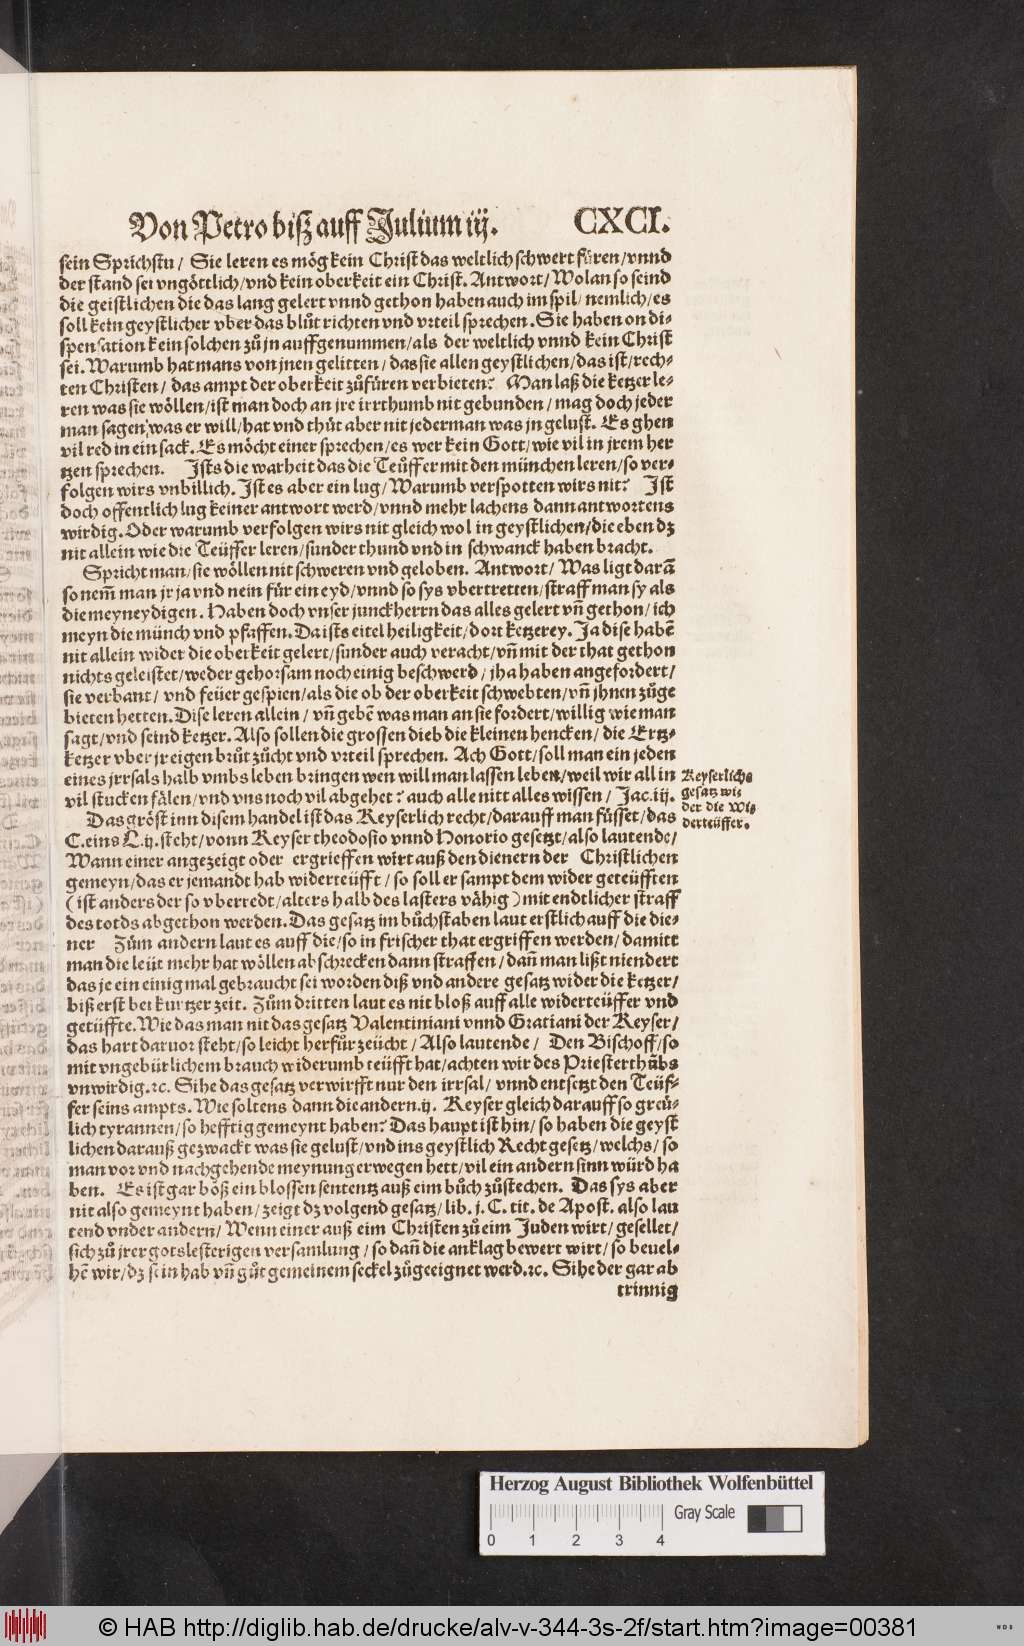 Von Petro biß auff Julium iij. CXCI.
sein Sprichstu / Sie leren es mög kein Christ das weltlich schwert füren / vnnd
der stand sei vngöttlich / vnd kein oberkeit ein Christ. Antwort / Wolan so seind
die geistlichen die das lang gelert vnnd gethon haben auch im spil / nemlich / es
soll kein geystlicher vber das blůt richten vnd vrteil sprechen. Sie haben on di-
spensation kein solchen zů jn auffgenummen / als der weltlich vnnd kein Christ
sei. Warumb hat mans von jnen gelitten / das sie allen geystlichen / das ist / rech-
ten Christen / das ampt der oberkeit zůfüren verbieten? Man laß die ketzer le-
ren was sie wöllen / ist man doch an jre irrthumb nit gebunden / mag doch jeder
man sagen was er will / hat vnd thůt aber nit jederman was jn gelust. Es ghen
vil red in ein sack. Es möcht einer sprechen / es wer kein Gott / wie vil in jrem her
tzen sprechen. Ists die warheit das die Teüffer mit den münchen leren / so ver-
folgen wirs vnbillich. Ist es aber ein lug / Warumb verspotten wirs nit? Ist
doch offentlich lug keiner antwort werd / vnnd mehr lachens dann antwortens
wirdig. Oder warumb verfolgen wirs nit gleich wol in geystlichen / die eben dz
nit allein wie die Teüffer leren / sunder thund vnd in schwanck haben bracht.
Spricht man / sie wöllen nit schweren vnd geloben. Antwort / Was ligt darā
so nem̄ man jr ja vnd nein für ein eyd / vnnd so sys vbertretten / straff man sy als
die meyneydigen. Haben doch vnser junckherrn das alles gelert vn̄ gethon / ich
meyn die münch vnd pfaffen. Da ists eitel heiligkeit / dort ketzerey. Ja dise habē
nit allein wider die oberkeit gelert / sunder auch veracht / vn̄ mit der that gethon
nichts geleistet / weder gehorsam noch einig beschwerd / jha haben angefordert /
sie verbant / vnd feüer gespien / als die ob der oberkeit schwebten / vn̄ jhnen zůge
bieten hetten. Dise leren allein / vn̄ gebē was man an sie fordert / willig wie man
sagt / vnd seind ketzer. Also sollen die grossen dieb die kleinen hencken / die Ertz-
ketzer vber jr eigen brůt zücht vnd vrteil sprechen. Ach Gott / soll man ein jeden
eines jrrsals halb vmbs leben bringen wen will man lassen leben / weil wir all in
vil stucken fälen / vnd vns noch vil abgehet? auch alle nitt alles wissen / Jac. iij.
Keyserliche
gesatz wi-
der die Wi-
derteüffer.
Das gröst inn disem handel ist das Keyserlich recht / darauff man fůsset / das
C. eins L. ij. steht / vonn Keyser theodosio vnnd Honorio gesetzt / also lautende /
Wann einer angezeigt oder ergrieffen wirt auß den dienern der Christlichen
gemeyn / das er jemandt hab widerteüfft / so soll er sampt dem wider geteüfften
( ist anders der so vberredt / alters halb des lasters vähig ) mit endtlicher straff
des totds abgethon werden. Das gesatz im bůchstaben laut erstlich auff die die-
ner Zům andern laut es auff die / so in frischer that ergriffen werden / damitt
man die leüt mehr hat wöllen abschrecken dann straffen / dan̄ man lißt niendert
das je ein einig mal gebraucht sei worden diß vnd andere gesatz wider die ketzer /
biß erst bei kurtzer zeit. Zům dritten laut es nit bloß auff alle widerteüffer vnd
getüffte. Wie das man nit das gesatz Valentiniani vnnd Gratiani der Keyser /
das hart daruor steht / so leicht herfür zeücht / Also lautende / Den Bischoff / so
mit vngebürlichem brauch widerumb teüfft hat / achten wir des Priesterthůbs
vnwirdig. ꝛc. Sihe das gesatz verwirfft nur den irrsal / vnnd entsetzt den Teüf-
fer seins ampts. Wie soltens dann die andern. ij. Keyser gleich darauff so greü-
lich tyrannen / so hefftig gemeynt haben? Das haupt ist hin / so haben die geyst
lichen darauß gezwackt was sie gelust / vnd ins geystlich Recht gesetz / welchs / so
man vor vnd nachgehende meynung erwegen hett / vil ein andern sinn würd ha
ben. Es ist gar böß ein blossen sententz auß eim bůch zůstechen. Das sys aber
nit also gemeynt haben / zeigt dz volgend gesatz / lib. j. C. tit. de Apost. also lau
tend vnder andern / Wenn einer auß eim Christen zů eim Juden wirt / gesellet /
sich zů jrer gotslesterigen versamlung / so dan̄ die anklag bewert wirt / so beuel-
hē wir / dz sein hab vn̄ gůt gemeinem seckel zůgeeignet werd. ꝛc. Sihe der gar ab
trinnig
Herzog August Bibliothek Wolfenbüttel
Gray Scale
0 1 2 3 4
© HAB http://diglib.hab.de/drucke/alv-v-344-3s-2f/start.htm?image=00381